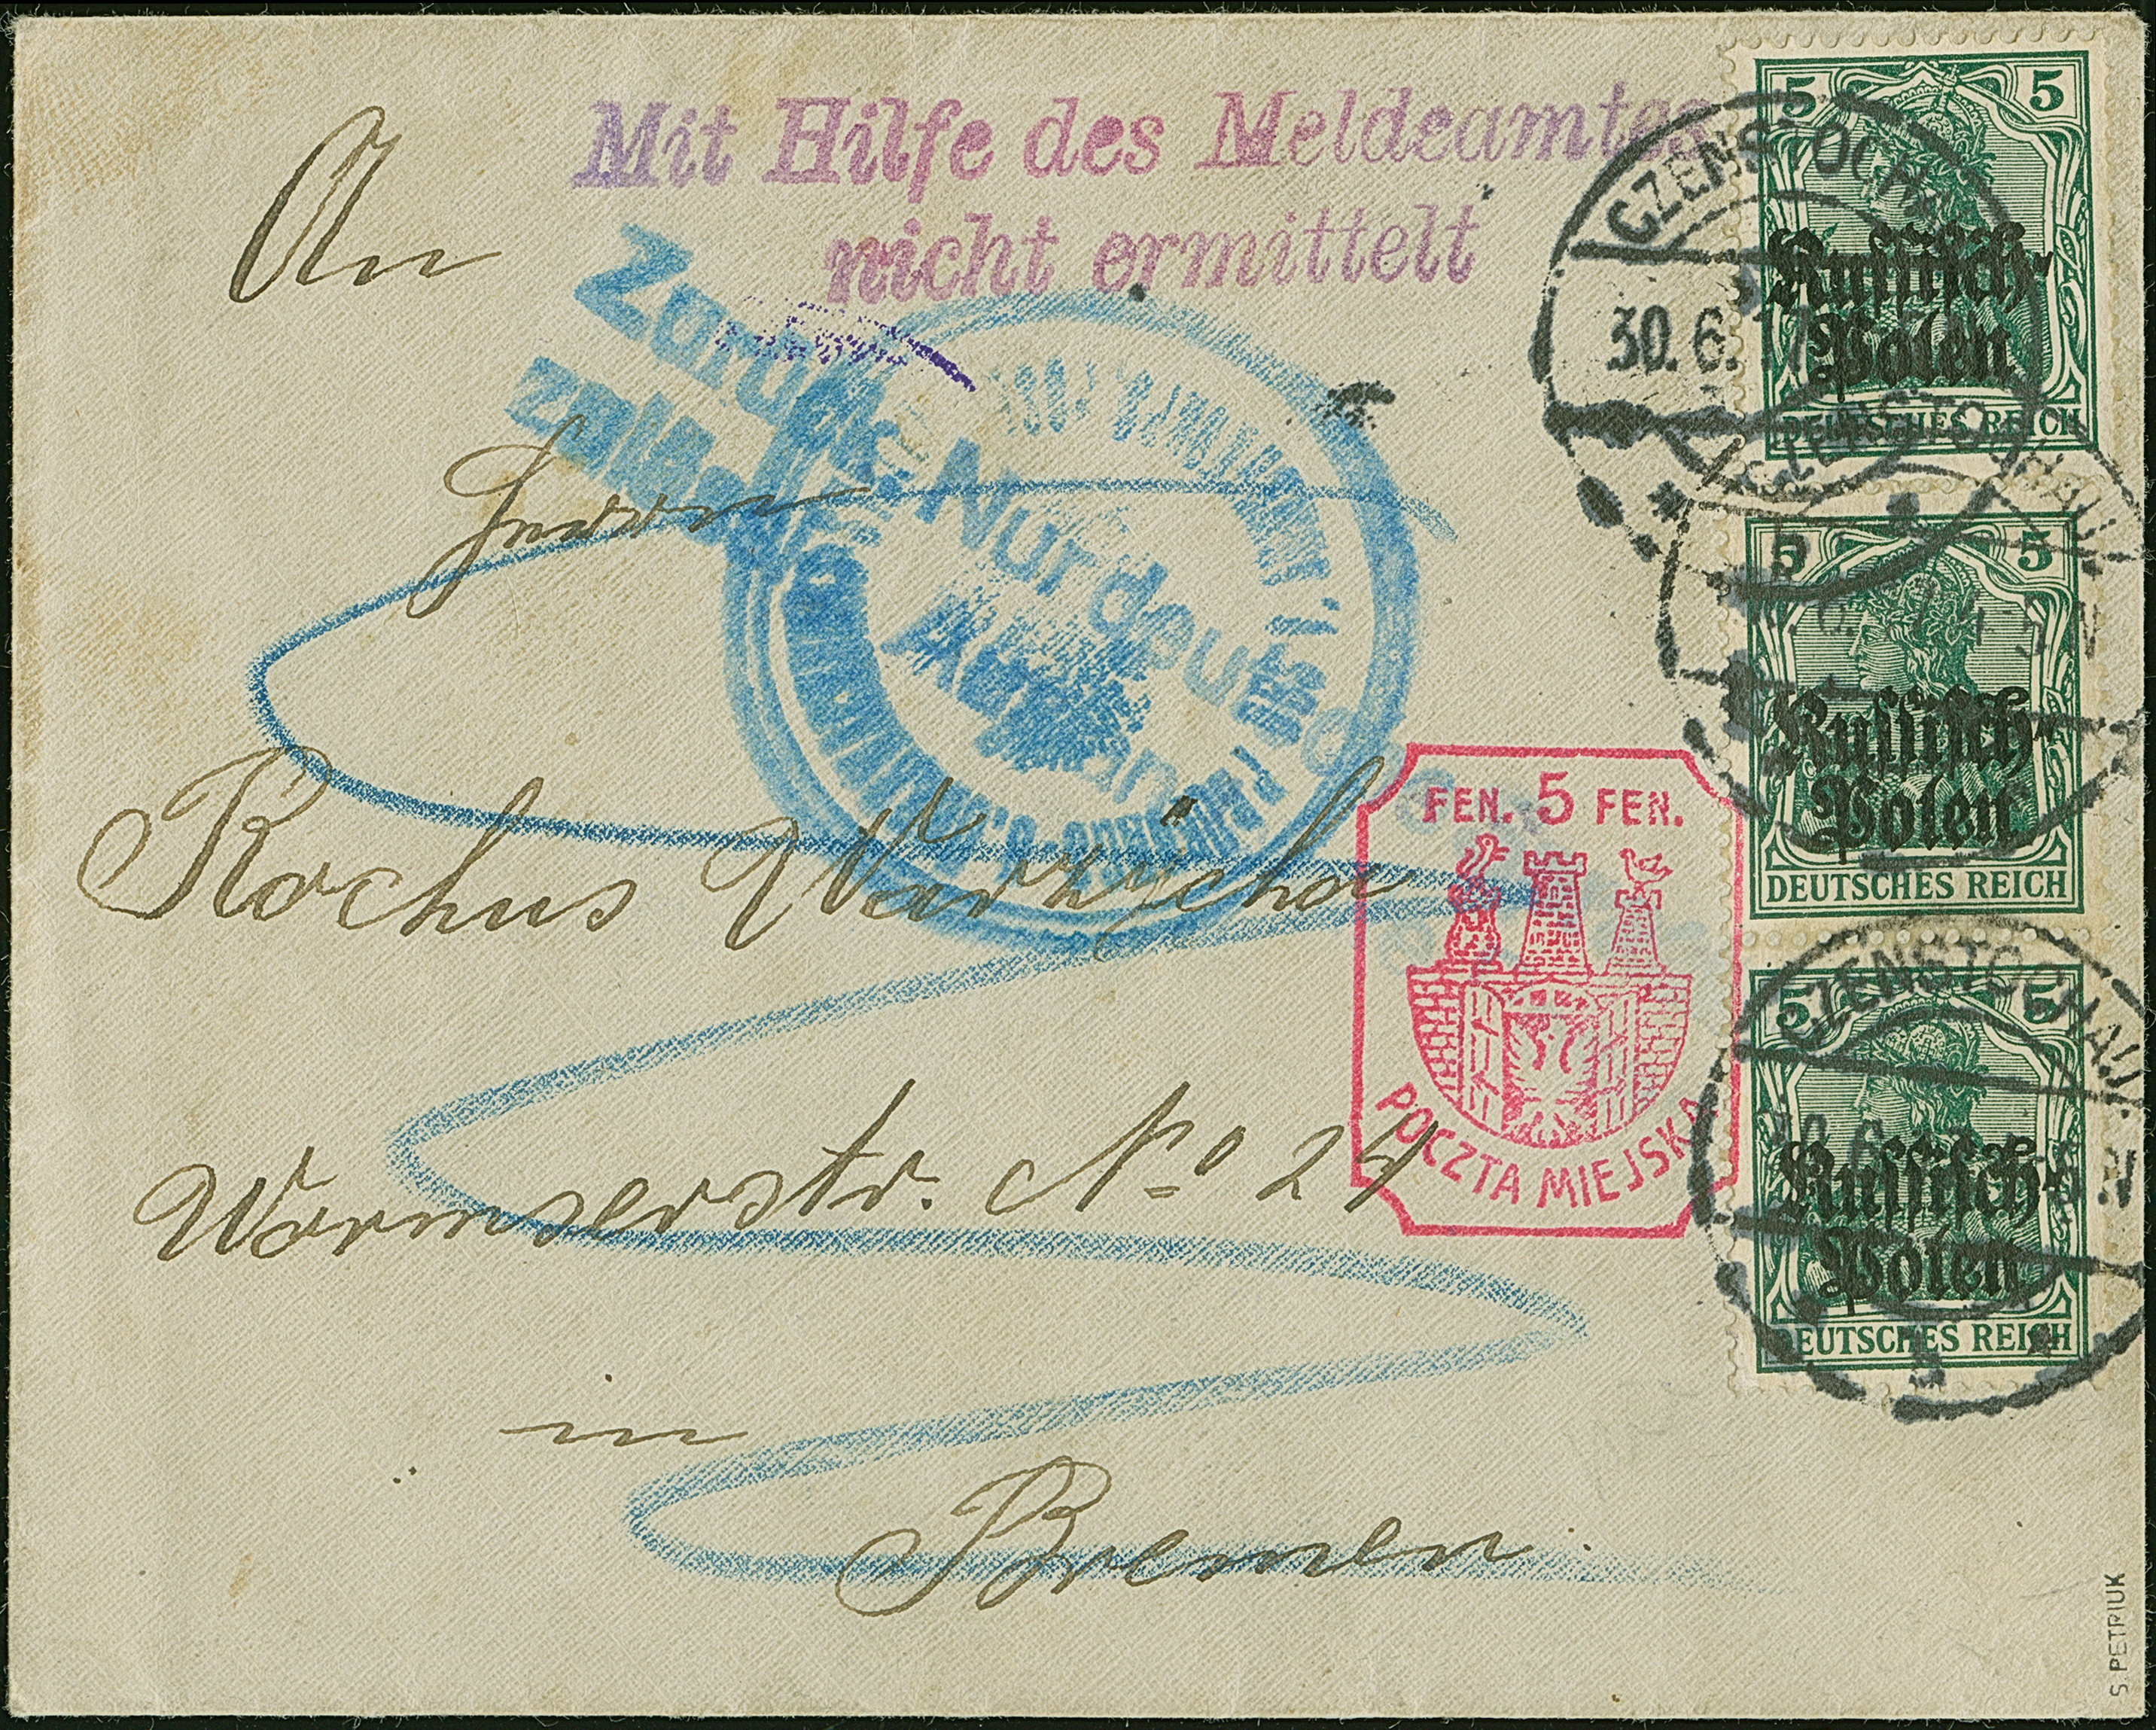 Mit Hilfe des Meldeamtes
nicht ermittelt
An
Zurück. Nur deut
Herrn
Rochus Warzycha
Wormserstr. No 24
in
Bremen.
FEN. 5 FEN.
POCZTA MIEJSKA
5 5
Russisch-
Polen
DEUTSCHES REICH
5 5
Russisch-
Polen
DEUTSCHES REICH
5 5
Russisch-
Polen
DEUTSCHES REICH
30.6.
CZENSTOCHAU
S. PETRIUK